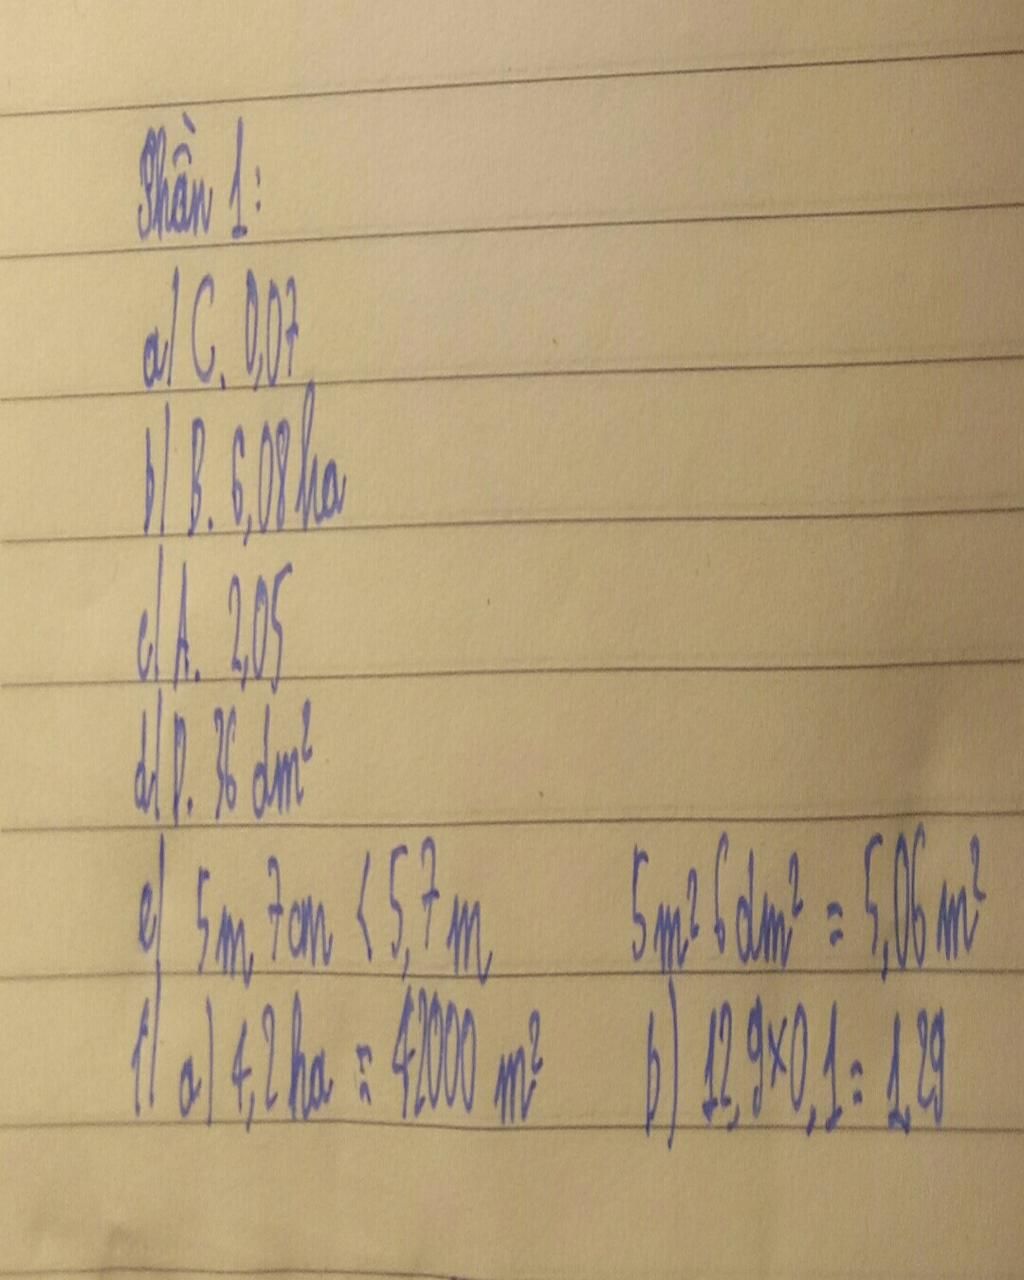 Phần 1:
a/ C. 0,07
b/ B. 6,08 ha
c/ A. 2,05
d/ D. 36 dm²
e/ 5m 7cm < 5,7 m 5m² 6 dm² = 5,06 m²
f/ a) 4,2 ha = 42000 m² b) 12,9 x 0,1 = 1,29